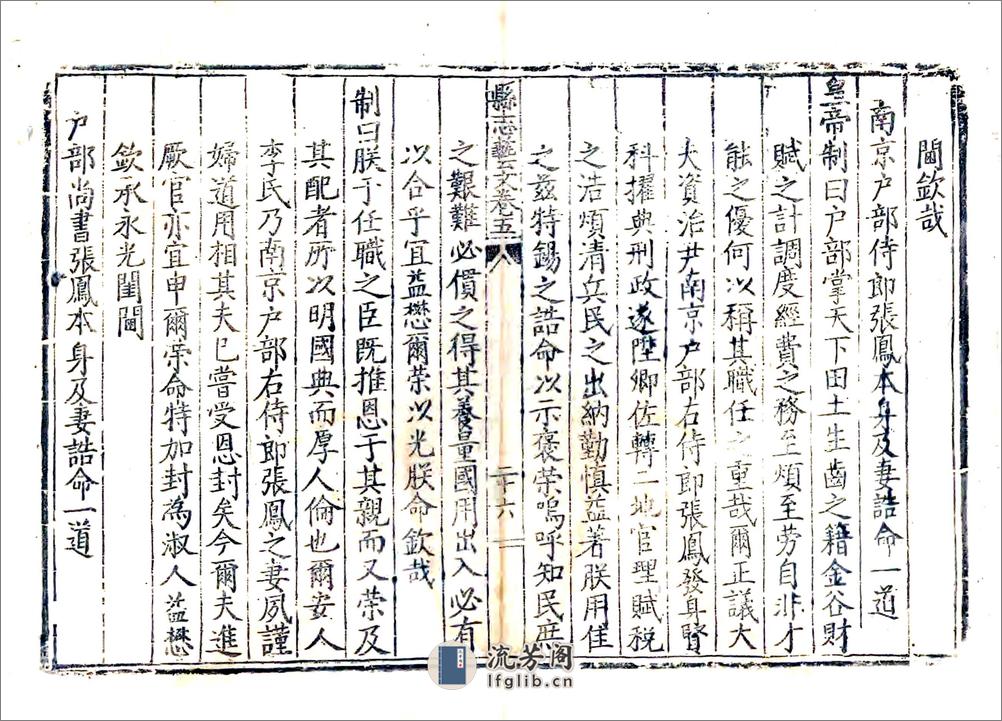 閫欽哉
南京户部侍郎張鳳本身及妻誥命一道
皇帝制曰户部掌天下田土生齒之籍金谷財
賦之計調度經費之務至煩至勞自非才
能之優何以稱其職任之重哉爾正議大
夫資治尹南京户部右侍郎張鳳發身賢
科擢典刑政遂陞卿佐轉二地官理賦税
之浩煩清兵民之出納勤慎益著朕用隹
之兹特錫之誥命以示褒荣嗚呼知民庶
縣志藝文卷五
二十六
之艱難必償之得其養量國用出入必有
以合乎宜益懋爾荣以光朕命欽哉
制曰朕于任職之臣既推恩于其親而又荣及
其配者所以明國典而厚人倫也爾安人
李氏乃南京户部右侍郎張鳳之妻夙謹
婦道用相其夫已嘗受恩封矣今爾夫進
厥官亦宜申爾荣命特加封為淑人益懋
欽承永光閨閫
户部尚書張鳳本身及妻誥命一道
流芳阁
lfglib.cn